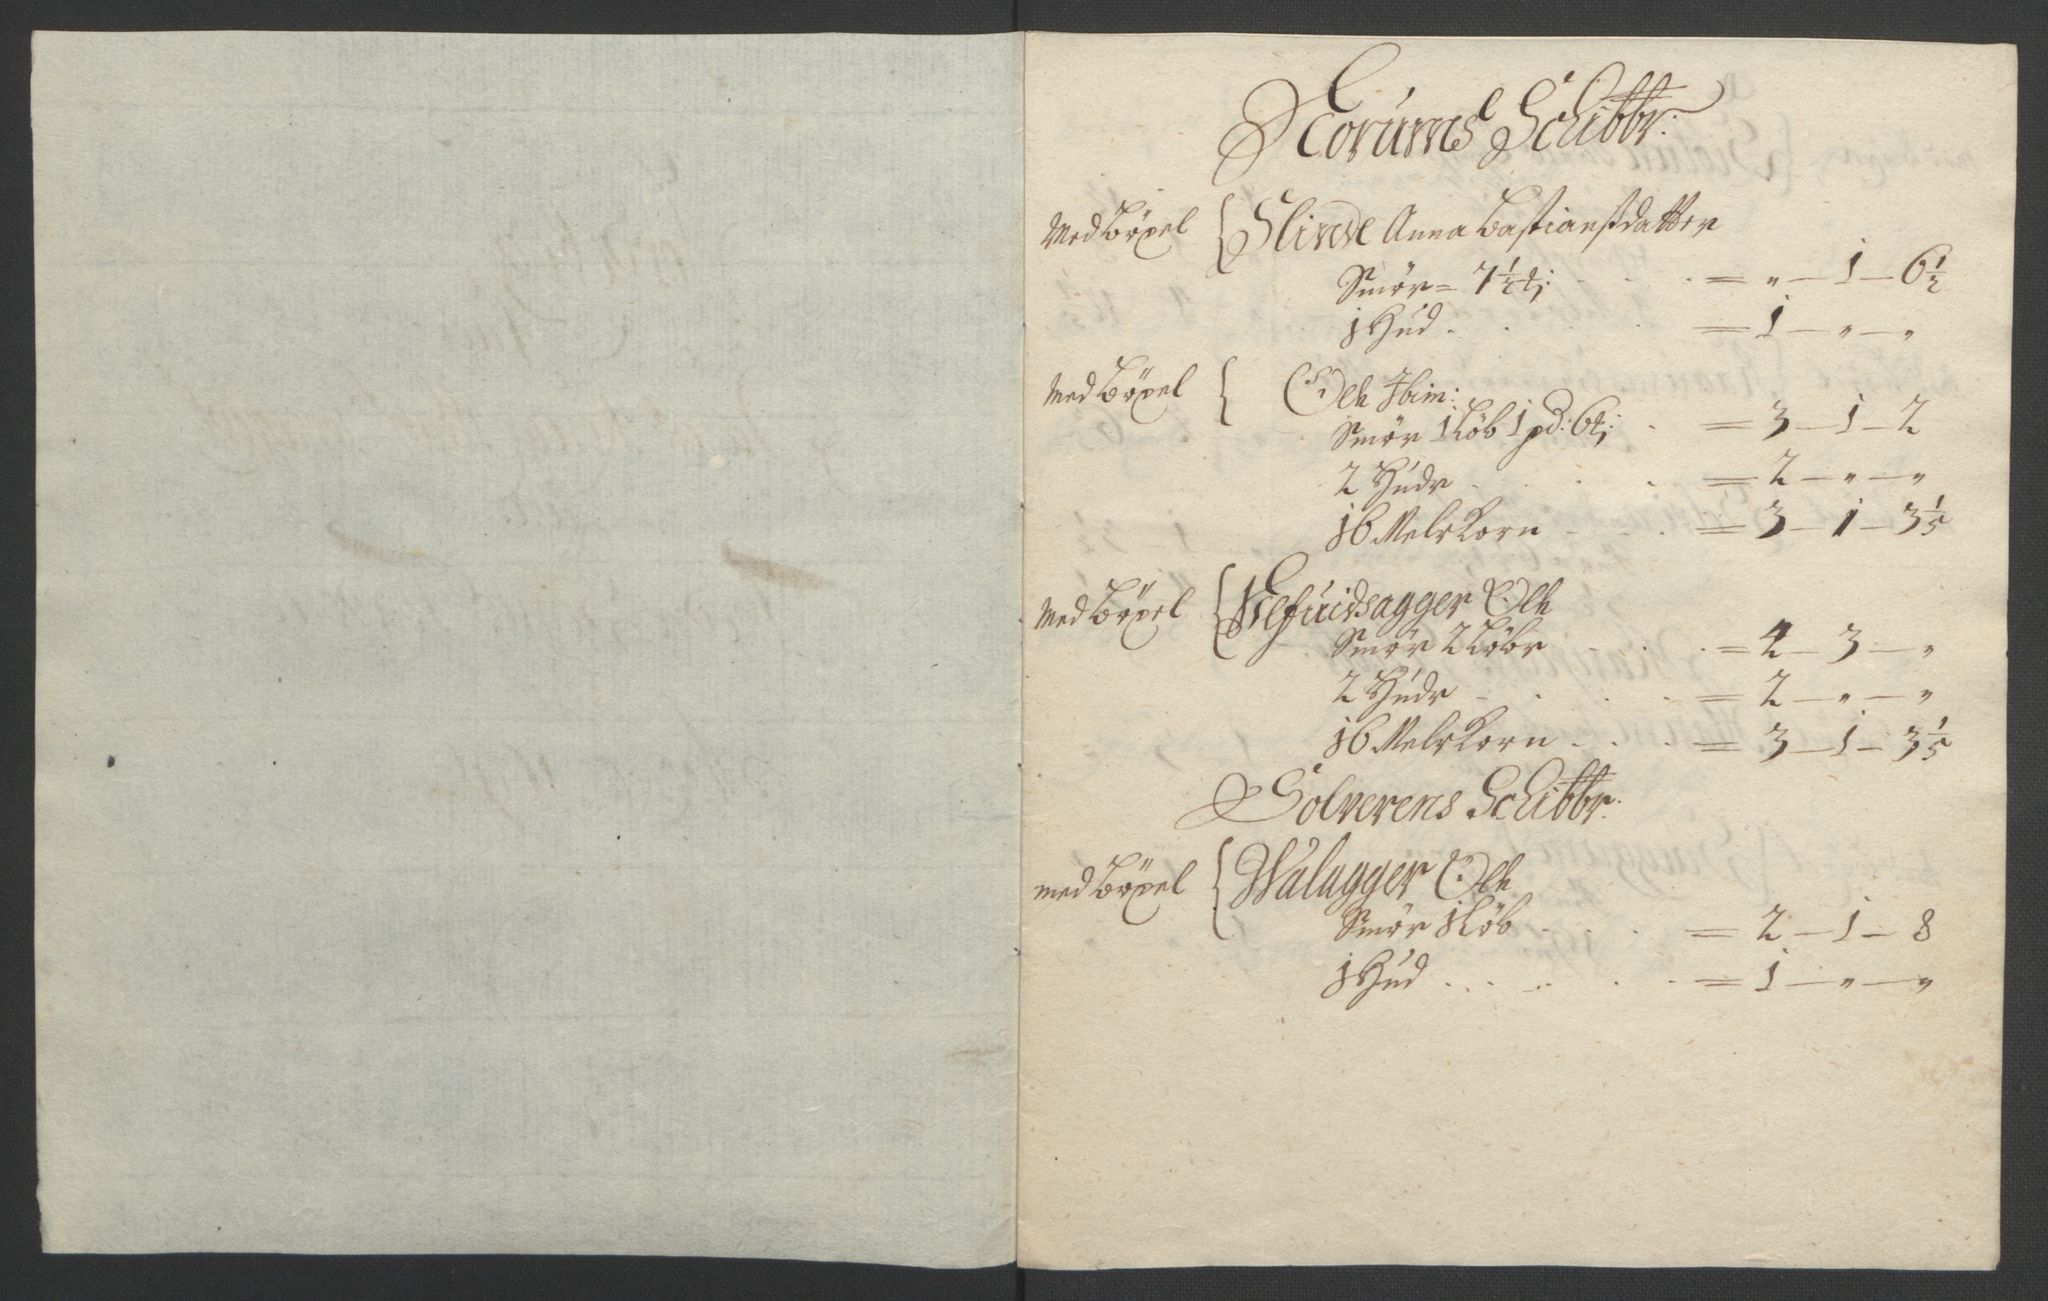 Norums Schibbr:
Med böxel { Slinde Anna Bastianssdatter
Smör = 7½ ℔; . . . = „ — 1 — 6½
1 Hud . . . = 1 — „ — „
Med böxel { Ole Ibim:
Smör 1 Löb 1 pd: 6 ℔; . = 3 — 1 — 2
2 Hudr . . . = 2 — „ — „
16 Melr Korn . . . = 3 — 1 — 3⅕
Med böxel { Nefuidsagger Ole
Smör 2 Löbr . . . = 4 — 3 — „
2 Hudr . . . = 2 — „ — „
16 Melr Korn . . . = 3 — 1 — 3⅕
Solverens Schibbr:
med böxel { Walagger Ole
Smör 1 Löb . . . = 2 — 1 — 8
1 Hud . . . = 1 — „ — „